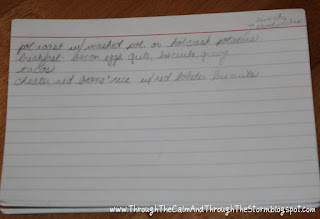 pot roast w/ mashed pot. or hotcrash potatoes
breakfast - bacon, eggs, grits, biscuits, gravy
tacos
red beans & rice w/ red lobster biscuits
www.ThroughTheCalmAndThroughTheStorm.blogspot.com